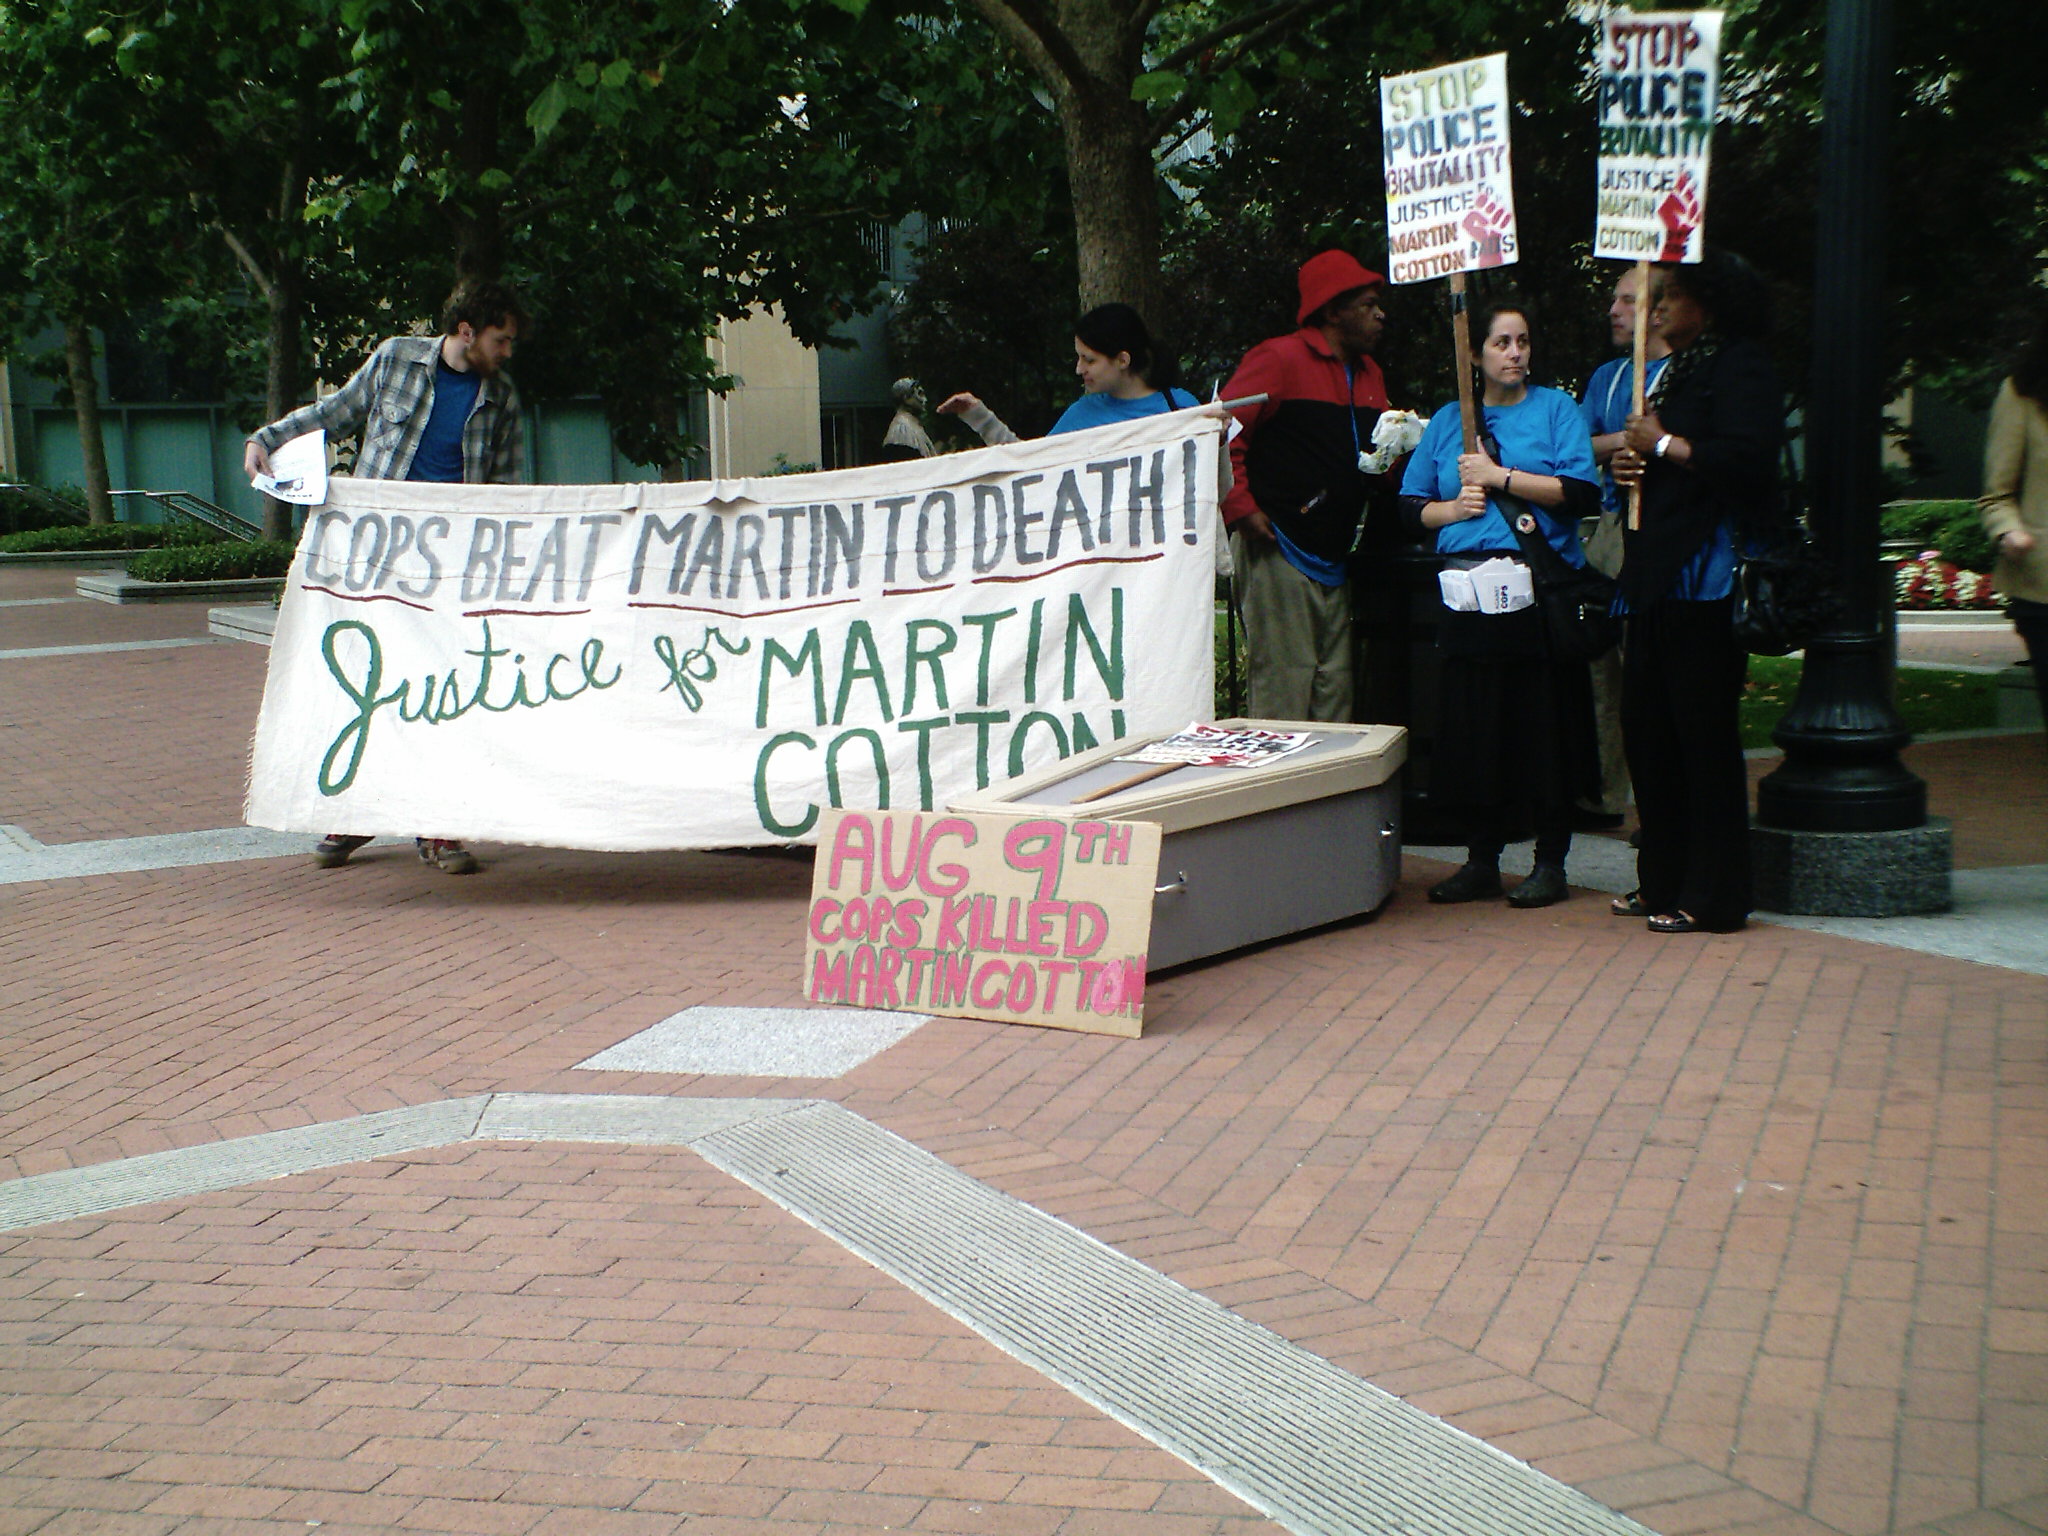 COPS BEAT MARTIN TO DEATH!
Justice for MARTIN
COTTON
STOP
POLICE
BRUTALITY
JUSTICE
MARTIN
COTTON
STOP
POLICE
BRUTALITY
JUSTICE
MARTIN
COTTON
STOP
POLICE
AUG 9TH
COPS KILLED
MARTIN COTTON
COPS